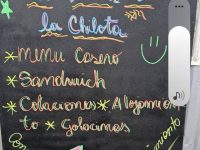 la Chilota
* Menu Casero
* Sandwich
* Colaciones * Alojamien
to * golosinas